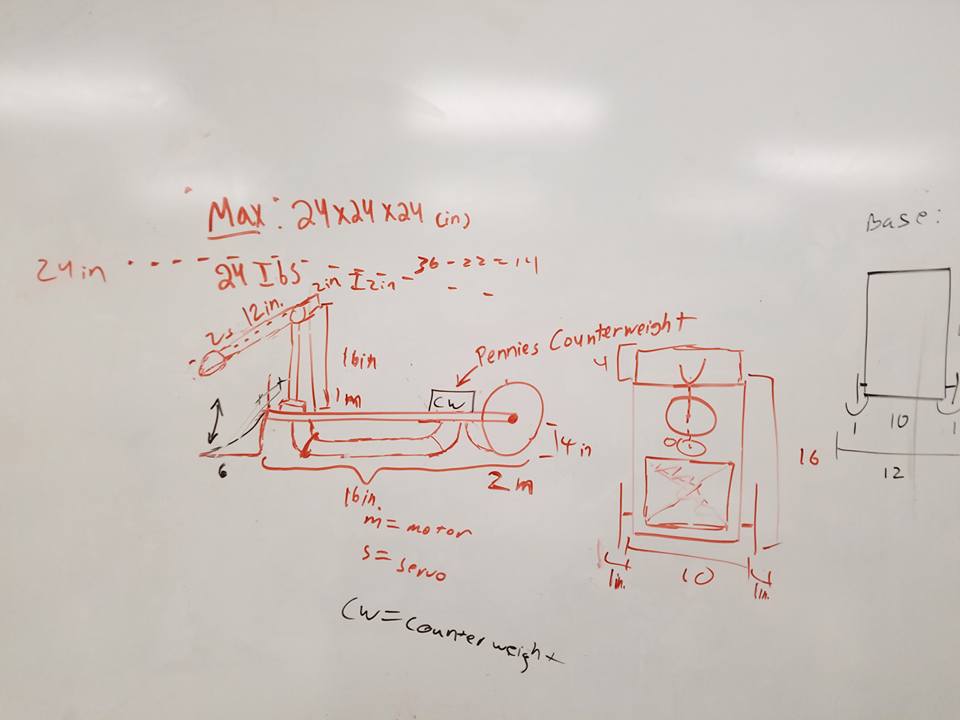 Max: 24x24x24 (in)
Base:
24in
24 Ibs
36 - 22 = 14
2in
2in
2s 12in.
16in
1m
Pennies Counterweight
CW
4in
6
16in.
2m
m = motor
s = servo
CW = Counterweight
4
16
1in.
10
1in.
1
10
1
12